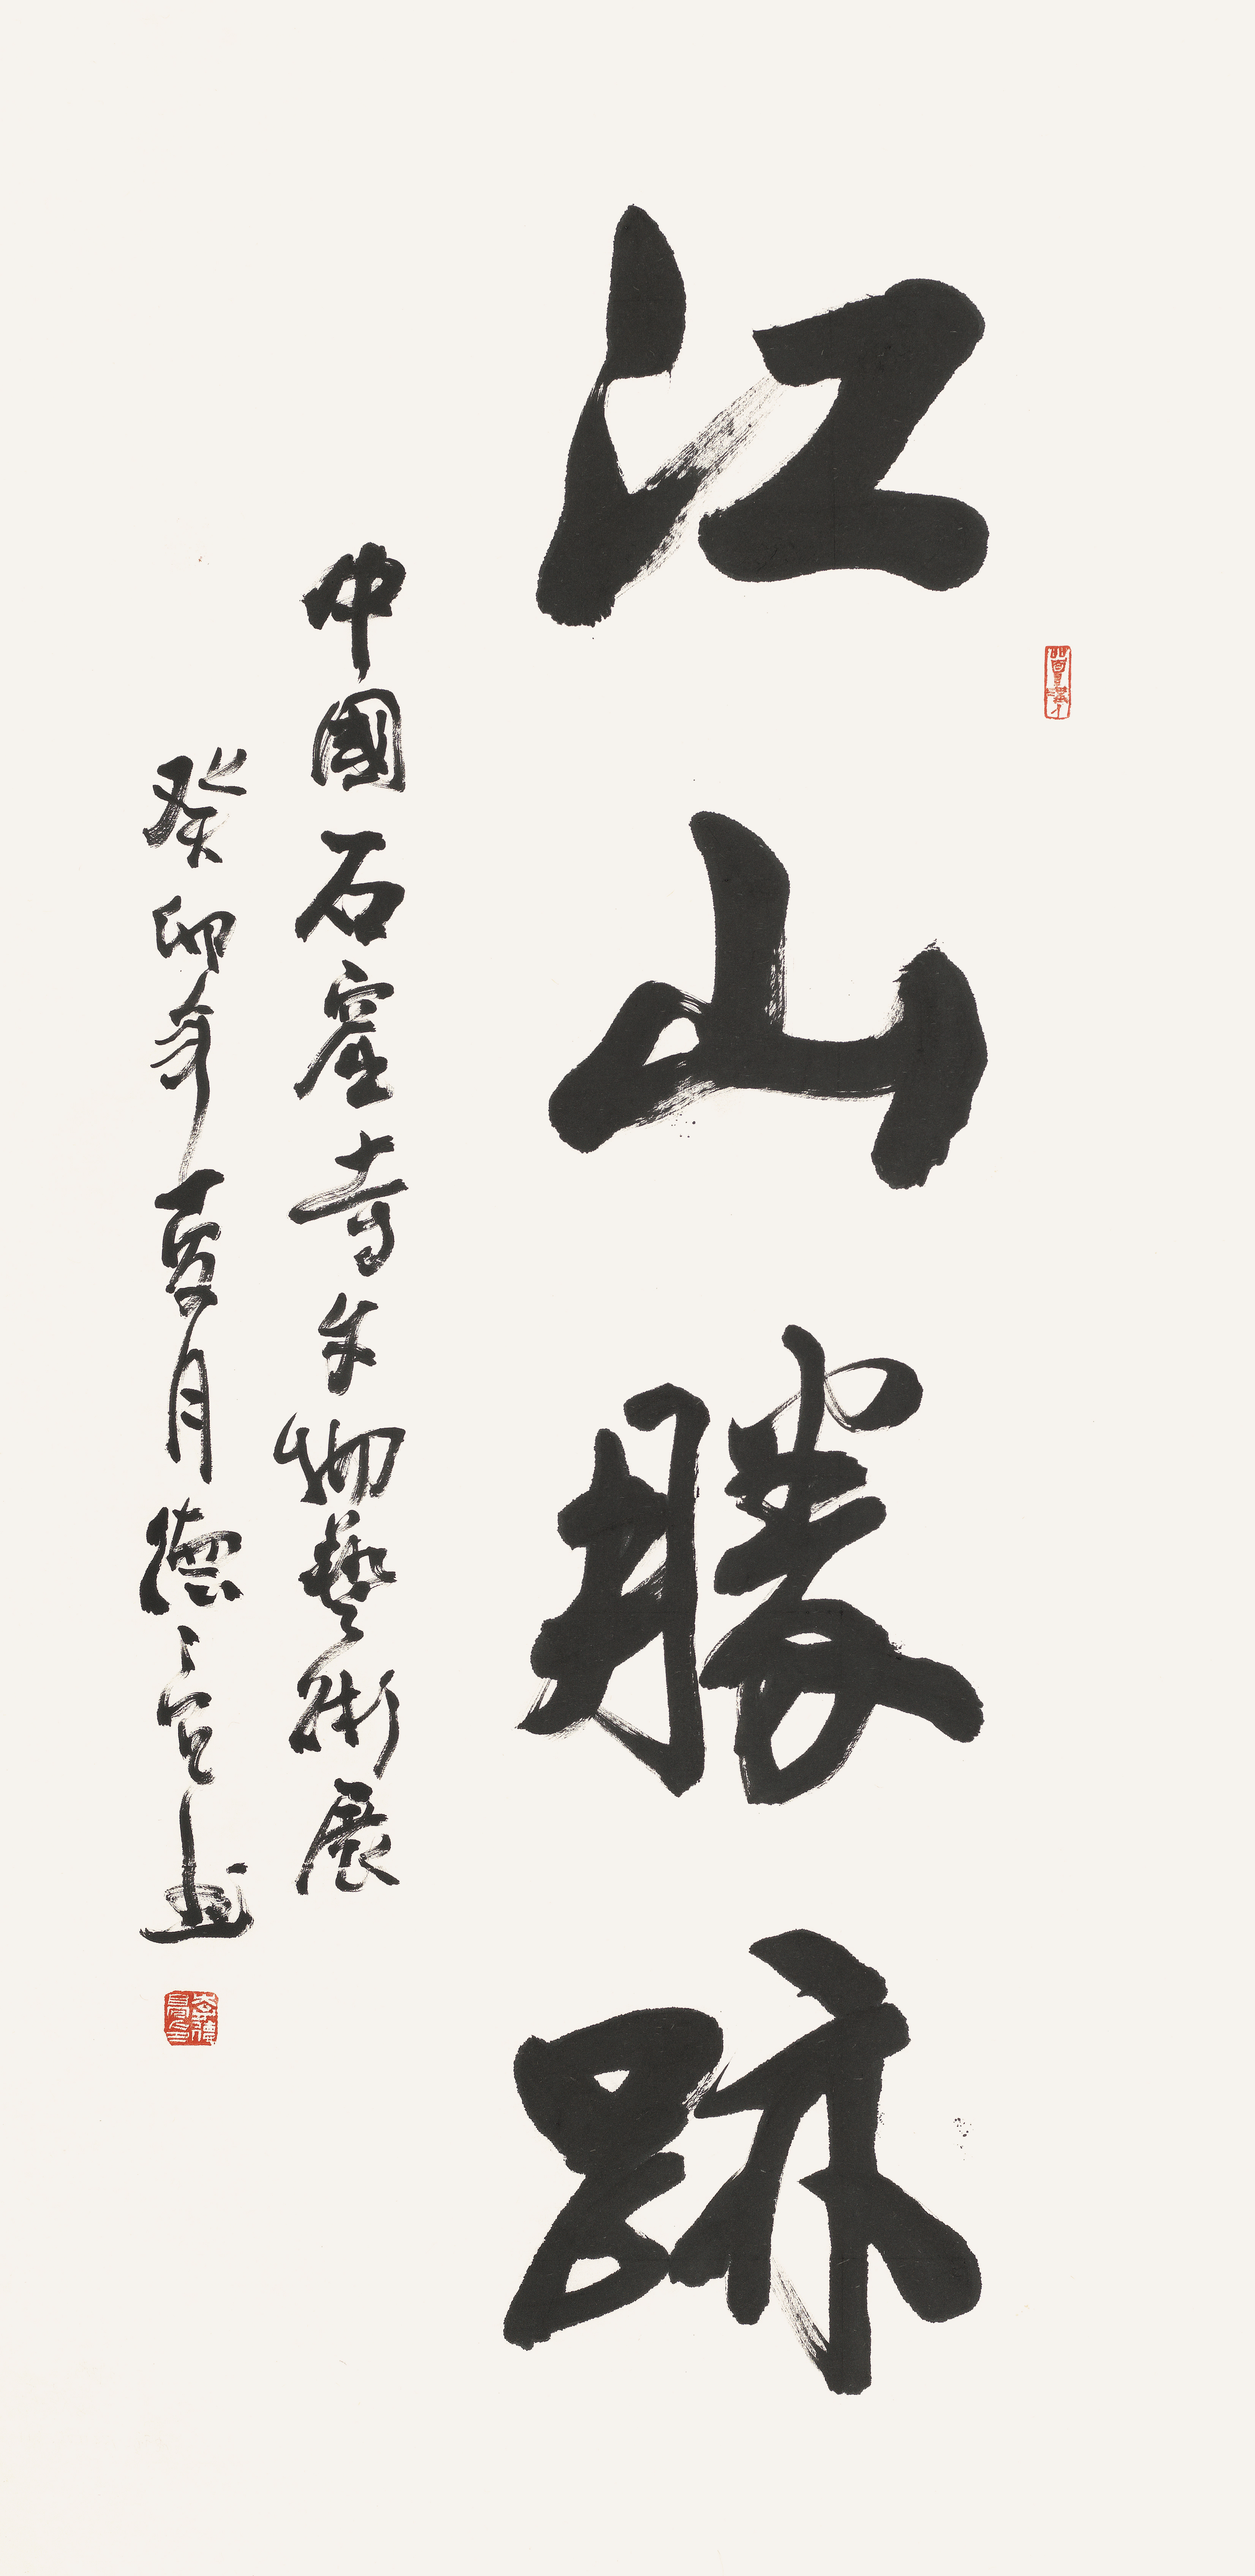 江山勝跡
中國石窟寺文物藝術展
癸卯年夏月德宫书